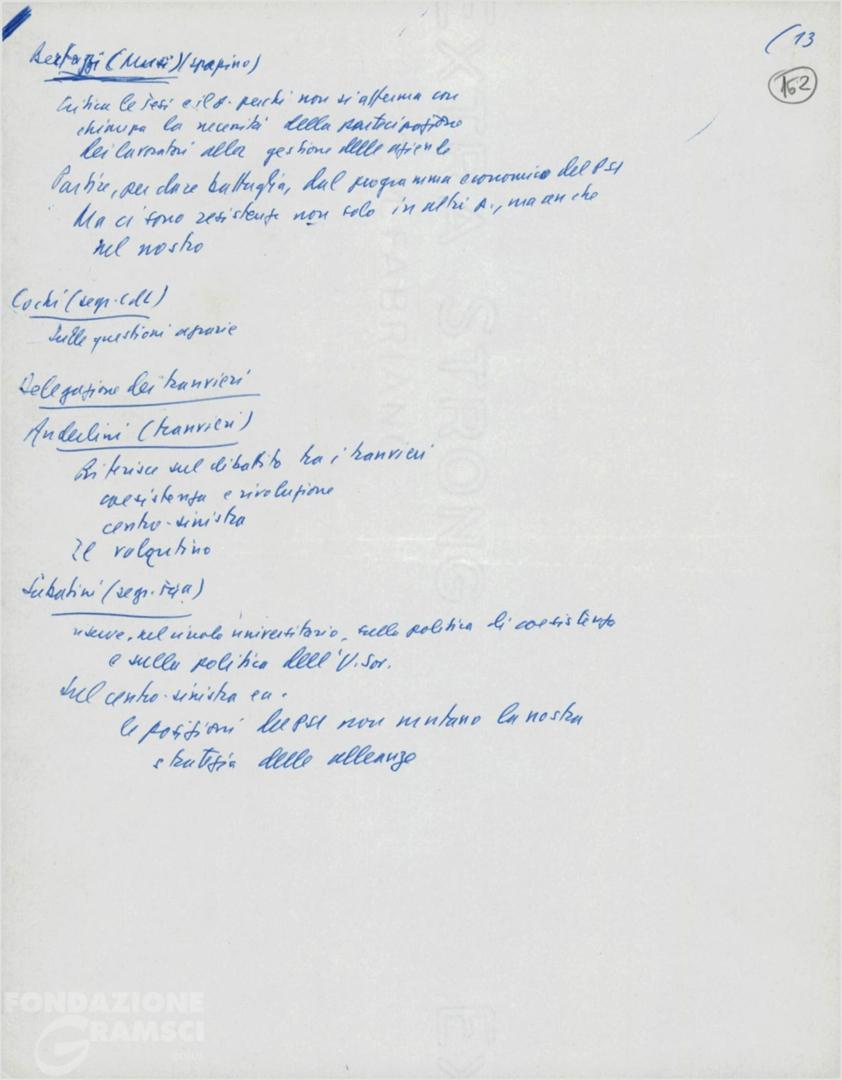 (13
162
Bertazzi (Musi) (spopino)
Critica le tesi e il d. perché non si afferma con
chiarezza la necessità della partecipazione
dei lavoratori alla gestione delle aziende
Partire, per dare battaglia, dal programma economico del PSI
Ma ci sono resistenze non solo in altri p., ma anche
nel nostro
Cochi (segr. CdL)
Sulle questioni agrarie
Delegazione dei tranvieri
Anderlini (tranvieri)
Riferisce sul dibattito tra i tranvieri
coesistenza e rivoluzione
centro-sinistra
Il
Sabatini (segr.
riserve, nel circolo universitario, sulla politica di coesistenza
e sulla politica dell'U. Sov.
Sul centro-sinistra
le posizioni del PSI non mutano la nostra
strategia delle alleanze
EXTRA STRONG
FABRIANO
FONDAZIONE
GRAMSCI
onlus